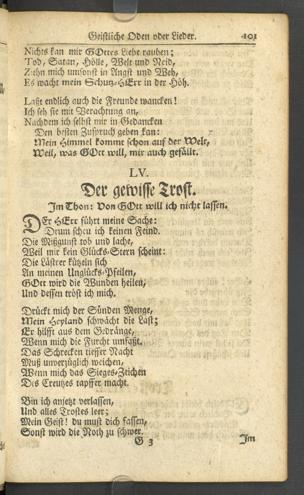 Geistliche Oden oder Lieder. 101
Nichts kan mir GOttes Liebe rauben;
Tod, Satan, Hölle, Welt und Neid,
Ziehn mich umsonst in Angst und Weh,
Es wacht mein Schutz-HErr in der Höh.
Laßt endlich auch die Freunde wancken!
Ich seh sie mit Verachtung an,
Nachdem ich selbst mir in Gedancken
Den besten Zuspruch geben kan:
Mein Himmel komme schon auf der Welt,
Weil, was GOtt will, mir auch gefällt.
LV.
Der gewisse Trost.
Im Thon: Von GOtt will ich nicht lassen.
DEr HErr führt meine Sache:
Drum scheu ich keinen Feind.
Die Mißgunst tob und lache,
Weil mir kein Glücks-Stern scheint:
Die Lästrer kützeln sich
An meinen Unglücks-Pfeilen,
GOtt wird die Wunden heilen,
Und dessen tröst ich mich.
Drückt mich der Sünden Menge,
Mein Heyland schwächt die Last;
Er hilfft aus dem Gedränge,
Wenn mich die Furcht umfaßt.
Das Schrecken tieffer Nacht
Muß unverzüglich weichen,
Wenn mich das Sieges-Zeichen
Des Creutzes tapffer macht.
Bin ich anjetzt verlassen,
Und alles Trostes leer;
Mein Geist! du must dich fassen,
Sonst wird die Noth zu schwer.
G 3 Im